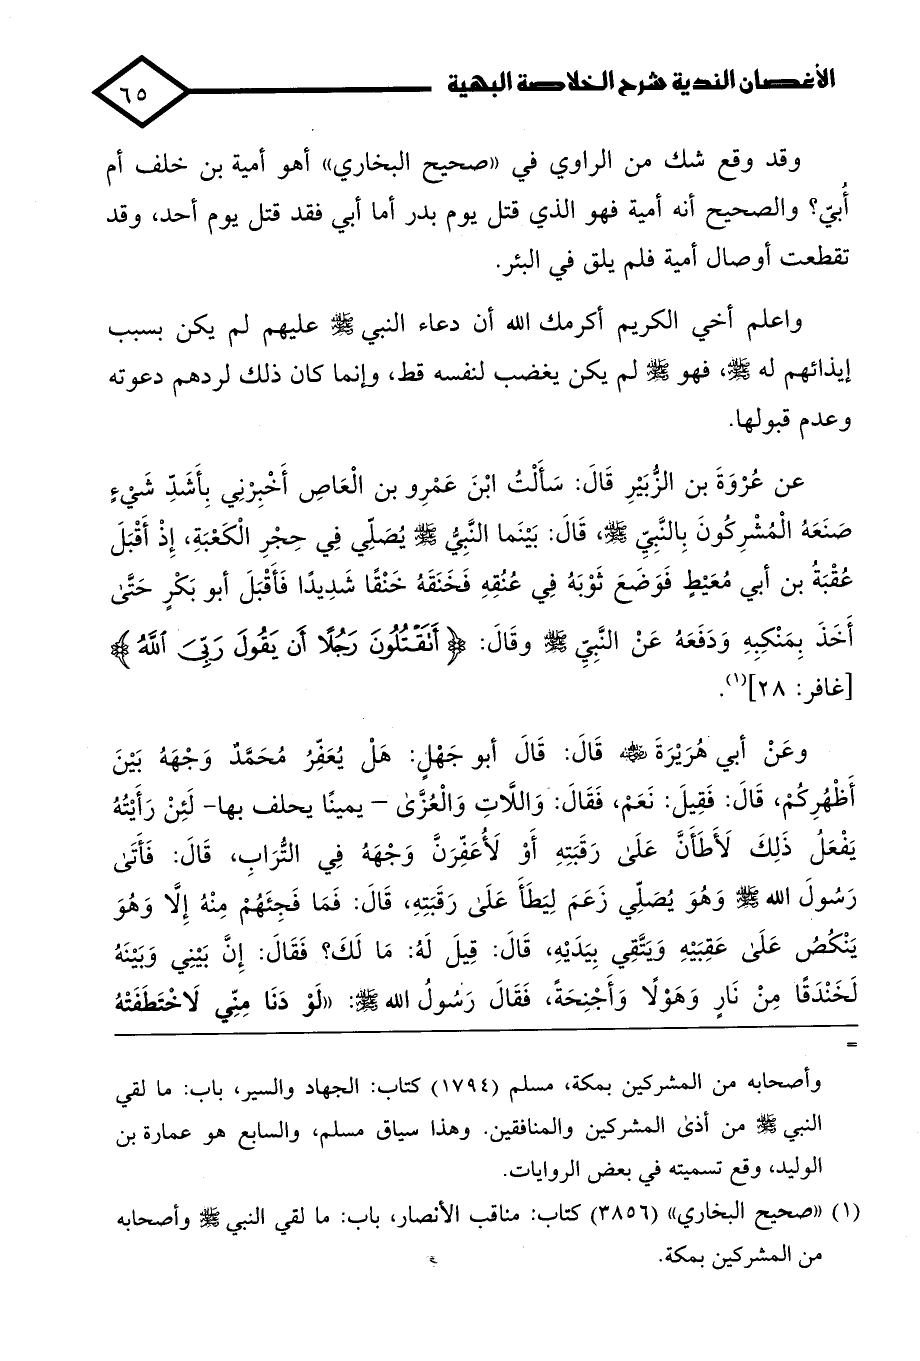 الأغصان الندية شرح الخلاصة البهية
٦٥
وقد وقع شك من الراوي في «صحيح البخاري» أهو أمية بن خلف أم
أُبيّ؟ والصحيح أنه أمية فهو الذي قتل يوم بدر أما أبي فقد قتل يوم أحد، وقد
تقطعت أوصال أمية فلم يلق في البئر.
واعلم أخي الكريم أكرمك الله أن دعاء النبي ﷺ عليهم لم يكن بسبب
إيذائهم له ﷺ، فهو ﷺ لم يكن يغضب لنفسه قط، وإنما كان ذلك لردهم دعوته
وعدم قبولها.
عن عُرْوَةَ بن الزُّبَيْرِ قَالَ: سَأَلْتُ ابْنَ عَمْرِو بن الْعَاصِ أَخْبِرْنِي بِأَشَدِّ شَيْءٍ
صَنَعَهُ الْمُشْرِكُونَ بِالنَّبِيِّ ﷺ، قَالَ: بَيْنَما النَّبِيُّ ﷺ يُصَلِّي فِي حِجْرِ الْكَعْبَةِ، إِذْ أَقْبَلَ
عُقْبَةُ بن أبي مُعَيْطٍ فَوَضَعَ ثَوْبَهُ فِي عُنُقِهِ فَخَنَقَهُ خَنْقًا شَدِيدًا فَأَقْبَلَ أبو بَكْرٍ حَتَّىٰ
أَخَذَ بِمَنْكِبِهِ وَدَفَعَهُ عَنْ النَّبِيِّ ﷺ وقَالَ: ﴿أَتَقْتُلُونَ رَجُلًا أَن يَقُولَ رَبِّيَ ٱللَّهُ﴾
[غافر: ٢٨](١).
وعَنْ أبي هُرَيْرَةَ رضي الله عنه قَالَ: قَالَ أبو جَهْلٍ: هَلْ يُعَفِّرُ مُحَمَّدٌ وَجْهَهُ بَيْنَ
أَظْهُرِكُمْ، قَالَ: فَقِيلَ: نَعَمْ، فَقَالَ: وَاللَّاتِ وَالْعُزَّىٰ – يمينًا يحلف بها- لَئِنْ رَأَيْتُهُ
يَفْعَلُ ذَلِكَ لَأَطَأَنَّ عَلَىٰ رَقَبَتِهِ أَوْ لَأُعَفِّرَنَّ وَجْهَهُ فِي التُّرَابِ، قَالَ: فَأَتَىٰ
رَسُولَ الله ﷺ وَهُوَ يُصَلِّي زَعَمَ لِيَطَأَ عَلَىٰ رَقَبَتِهِ، قَالَ: فَمَا فَجِئَهُمْ مِنْهُ إِلَّا وَهُوَ
يَنْكُصُ عَلَىٰ عَقِبَيْهِ وَيَتَّقِي بِيَدَيْهِ، قَالَ: قِيلَ لَهُ: مَا لَكَ؟ فَقَالَ: إِنَّ بَيْنِي وَبَيْنَهُ
لَخَنْدَقًا مِنْ نَارٍ وَهَوْلًا وَأَجْنِحَةً، فَقَالَ رَسُولُ الله ﷺ: «لَوْ دَنَا مِنِّي لَاخْتَطَفَتْهُ
=
وأصحابه من المشركين بمكة، مسلم (١٧٩٤) كتاب: الجهاد والسير، باب: ما لقي
النبي ﷺ من أذىٰ المشركين والمنافقين. وهذا سياق مسلم، والسابع هو عمارة بن
الوليد، وقع تسميته في بعض الروايات.
(١) «صحيح البخاري» (٣٨٥٦) كتاب: مناقب الأنصار، باب: ما لقي النبي ﷺ وأصحابه
من المشركين بمكة.